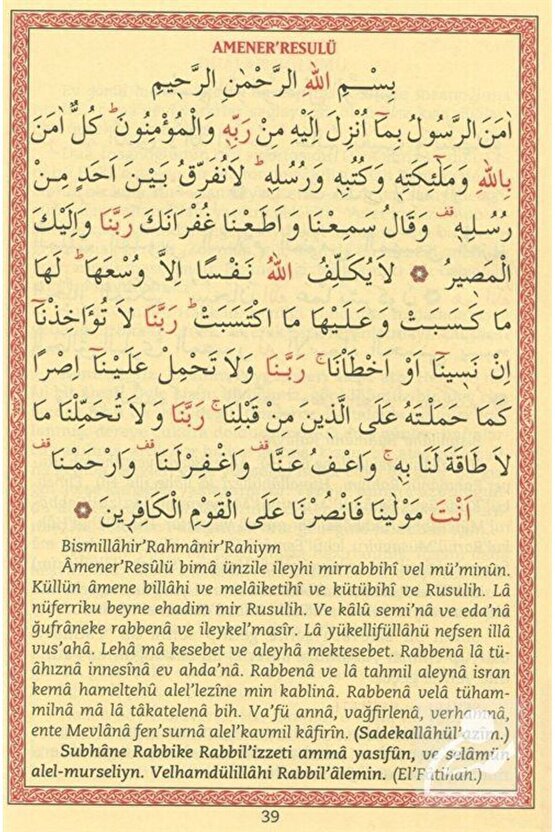 AMENER’RESULÜ
بِسْــمِ اللهِ الرَّحْمٰنِ الرَّحٖيمِ
اٰمَنَ الرَّسُولُ بِمَٓا اُنْزِلَ اِلَيْهِ مِنْ رَبِّهٖ وَالْمُؤْمِنُونَؕ كُلٌّ اٰمَنَ
بِاللهِ وَمَلٰٓئِكَتِهٖ وَكُتُبِهٖ وَرُسُلِهٖؕ لَانُفَرِّقُ بَيْنَ اَحَدٍ مِنْ
رُسُلِهٖ قف وَقَالُ سَمِعْنَا وَ اَطَعْنَا غُفْرَانَكَ رَبَّنَا وَاِلَيْكَ
الْمَصٖيرُ ۞ لَا يُكَلِّفُ اللهُ نَفْسًا اِلَّا وُسْعَهَاؕ لَهَا
مَا كَسَبَتْ وَعَلَيْهَا مَا اكْتَسَبَتْؕ رَبَّنَا لَا تُؤَاخِذْنَٓا
اِنْ نَسٖينَٓا اَوْ اَخْطَاْنَاۚ رَبَّنَا وَلَا تَحْمِلْ عَلَيْنَٓا اِصْرًا
كَمَا حَمَلْتَهُ عَلَى الَّذٖينَ مِنْ قَبْلِنَاۚ رَبَّنَا وَ لَا تُحَمِّلْنَا مَا
لَا طَاقَةَ لَنَا بِهٖۚ وَاعْفُ عَنَّا قف وَاغْفِرْلَنَا قف وَارْحَمْنَا قف
اَنْتَ مَوْلٰينَا فَانْصُرْنَا عَلَى الْقَوْمِ الْكَافِرٖينَ ۞
Bismillâhir’Rahmânir’Rahiym
Âmener’Resûlü bimâ ünzile ileyhi mirrabbihî vel mü’minûn.
Küllün âmene billâhi ve melâiketihî ve kütübihî ve Rusulih. Lâ
nüferriku beyne ehadim mir Rusulih. Ve kâlû semi’nâ ve eda’nâ
ğufrâneke rabbenâ ve ileykel’masîr. Lâ yükellifüllâhü nefsen illâ
vus’ahâ. Lehâ mâ kesebet ve aleyhâ mektesebet. Rabbenâ lâ tü-
âhıznâ innesînâ ev ahda’nâ. Rabbenâ ve lâ tahmil aleynâ isran
kemâ hameltehû alel’lezîne min kablinâ. Rabbenâ velâ tüham-
milnâ mâ lâ tâkatelenâ bih. Va’fü annâ, vağfirlenâ, verhamnâ,
ente Mevlânâ fen’surnâ alel’kavmil kâfirîn. (Sadekallâhül’azîm.)
Subhâne Rabbike Rabbil’izzeti ammâ yasıfûn, ve selâmün
alel-murseliyn. Velhamdülillâhi Rabbil’âlemin. (El’Fâtihah.)
39